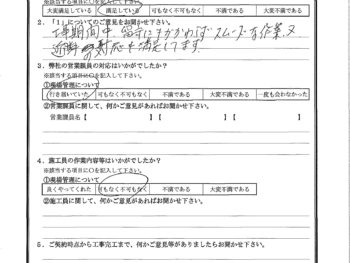 ※該当する項目に〇を記入して下さい。
大変満足している 満足している 可もなく不可もなく 不満である 大変不満である
2.「1」についてのご意見をお聞かせ下さい。
工事期間中、留守にもかかわらずスムーズな作業、又
近隣の対応も満足してます。
3．弊社の営業課員の対応はいかがでしたか？
※該当する項目に〇を記入して下さい。
①現場管理について
行き届いていた 可もなく不可もなく 不満である 大変不満である 一度も会わなかった
②営業課員に関して、何かご意見があればお聞かせ下さい。
営業課員名【 】【 】【 】
4．施工員の作業内容等はいかがでしたか？
※該当する項目に〇を記入して下さい。
①現場管理について
良くやってくれた 可もなく不可もなく 不満である 大変不満である
②施工員に関して、何かご意見があればお聞かせ下さい。
5．ご契約時点から工事完工まで、何かご意見等がありましたらお聞かせ下さい。